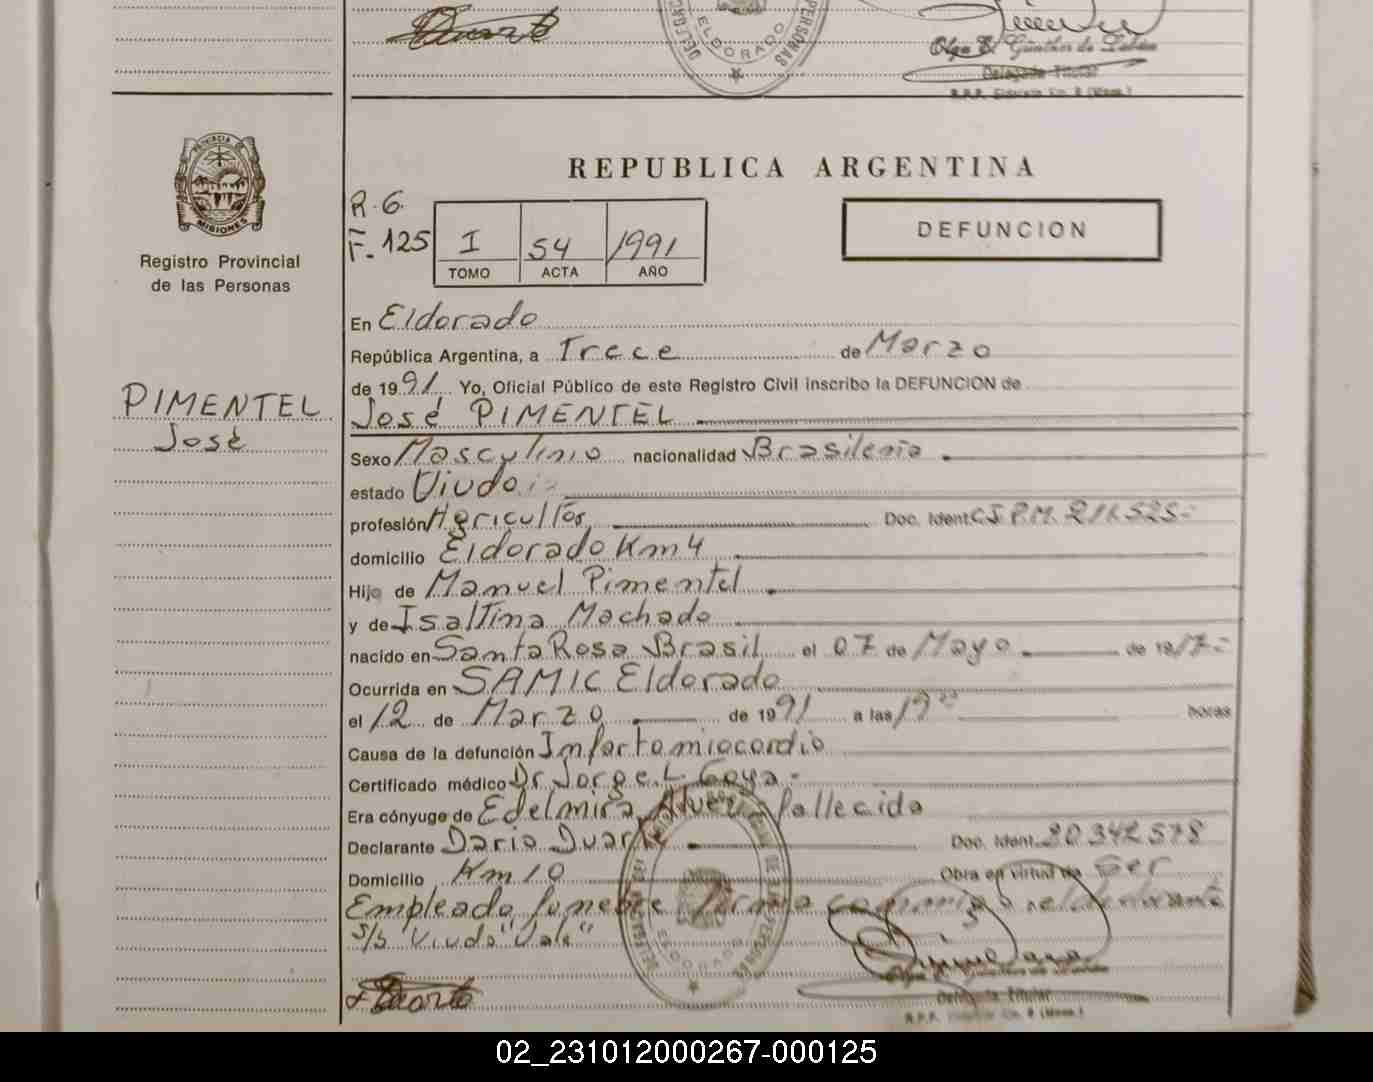 Duarte
DELEGA
PERSONAS
ELDORADO
Olga E. Günther de
Delegada Titular
R.P.P. Eldorado
PROVINCIA DE
MISIONES
Registro Provincial
de las Personas
PIMENTEL
José
REPUBLICA ARGENTINA
R.G.
F. 125
I 54 1991
TOMO ACTA AÑO
DEFUNCION
En Eldorado
República Argentina, a Trece de Marzo
de 1991 Yo, Oficial Público de este Registro Civil inscribo la DEFUNCION de
José PIMENTEL
Sexo Masculino nacionalidad Brasileña
estado Viudo
profesión Agricultor Doc. Ident. C.I.P.M. 211.525
domicilio Eldorado Km 4
Hijo de Manuel Pimentel
y de Isaltina Machado
nacido en Santa Rosa Brasil el 07 de Mayo de 1917
Ocurrida en SAMIC Eldorado
el 12 de Marzo de 1991 a las 19 horas
Causa de la defunción Infarto miocardio
Certificado médico Dr. Jorge L. Goya
Era cónyuge de Edelmira fallecida
Declarante Dario Duarte Doc. Ident. 20.342.578
Domicilio Km 10 Obra en virtud de Ser
Empleado funebre Firma conmigo el declarante
S/b Viudo "Vale"
ELDORADO
Duarte
Delegada Titular
R.P.P.
02_231012000267-000125